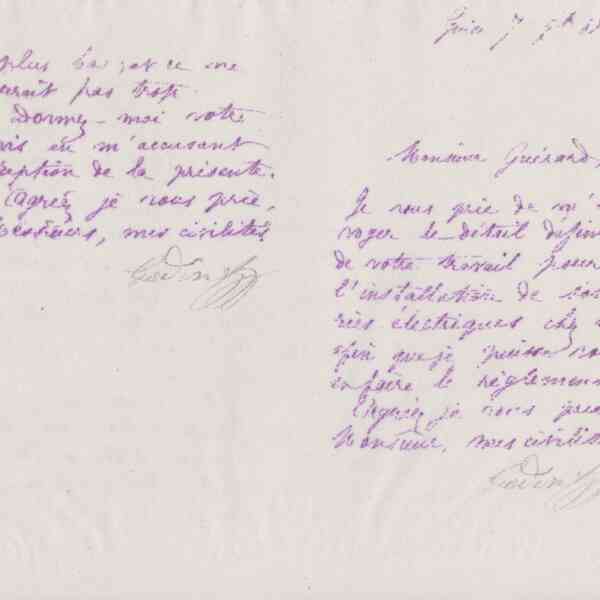 plus bas et ce ne
paraît pas trop
Donnez-moi votre
avis en m'accusant
réception de la présente.
Agréez je vous prie,
Messieurs, mes civilités
Godin
Guise 7 9bre
Monsieur Guérard,
Je vous prie de m'
voyer le détail défin
de votre travail pour
l'installation de son
ries électriques chez
afin que je puisse vous
en faire le règlement
Agréez je vous prie
Monsieur, mes civilités
Godin